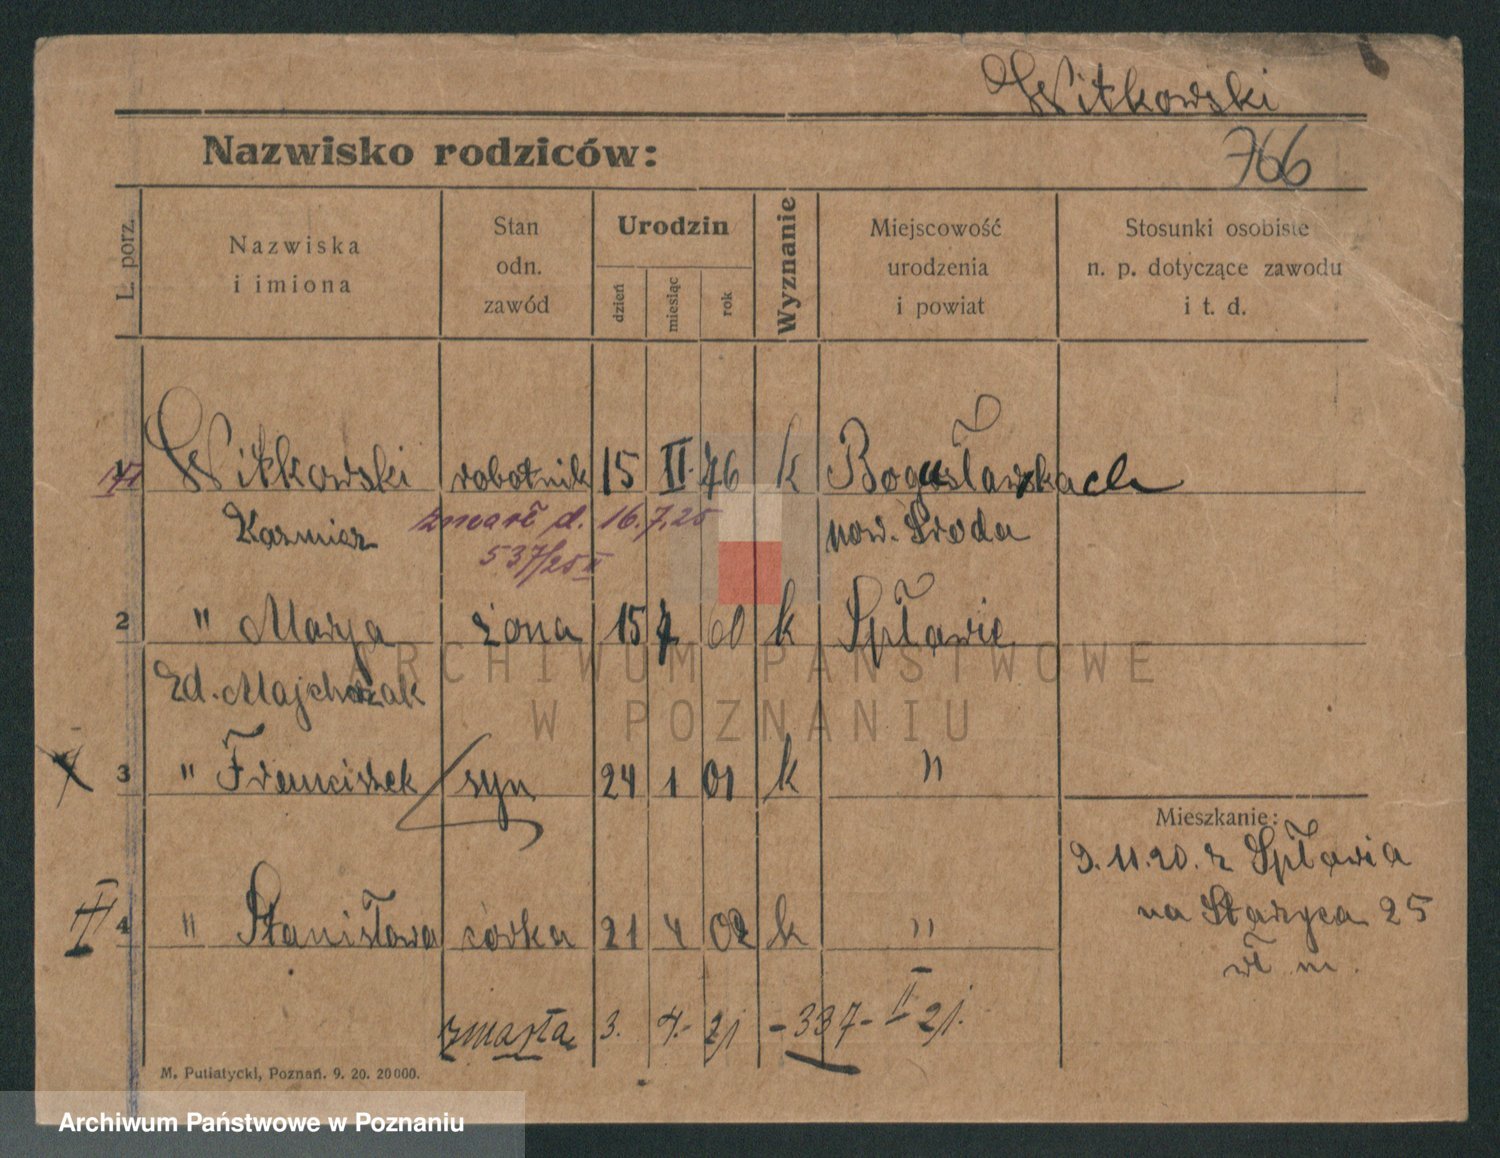 Witkowski
766
Nazwisko rodziców:
L. porz.
Nazwiska
i imiona
Stan
odn.
zawód
Urodzin
dzień
miesiąc
rok
Wyznanie
Miejscowość
urodzenia
i powiat
Stosunki osobiste
n. p. dotyczące zawodu
i t. d.
Witkowski robotnik 15 II. 46 k Bogusławkach
Kazmierz zmarł d. 16.7.25 pow. Środa
537/25 II
2 " Marya żona 15 60 k Spławie
zd. Majchrzak
3 " Franciszek syn 24 1 01 k "
Mieszkanie:
9.11.20. z Spławia
na Starołęca 25
wł m.
4 " Stanisława córka 21 4 02 k "
zmarła 3. 4.- 21 - 337 - II 21.
M. Putiatycki, Poznań. 9. 20. 20000.
ARCHIWUM PAŃSTWOWE
W POZNANIU
Archiwum Państwowe w Poznaniu